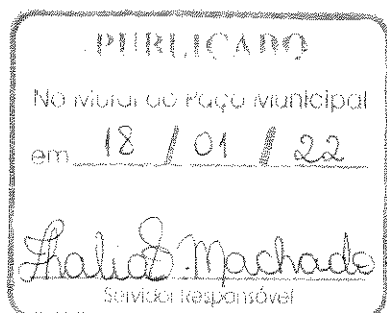 PUBLICADO
No Mural do Paço Municipal
em 18 / 01 / 22
Thalia S. Machado
Servidor Responsável